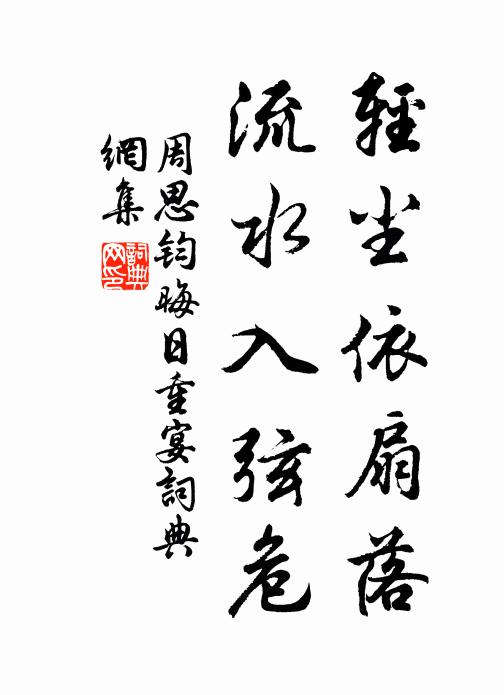 輕尘依扇落
流水入弦危
周思鈞晦日重宴詞典
網集
詞典
网印